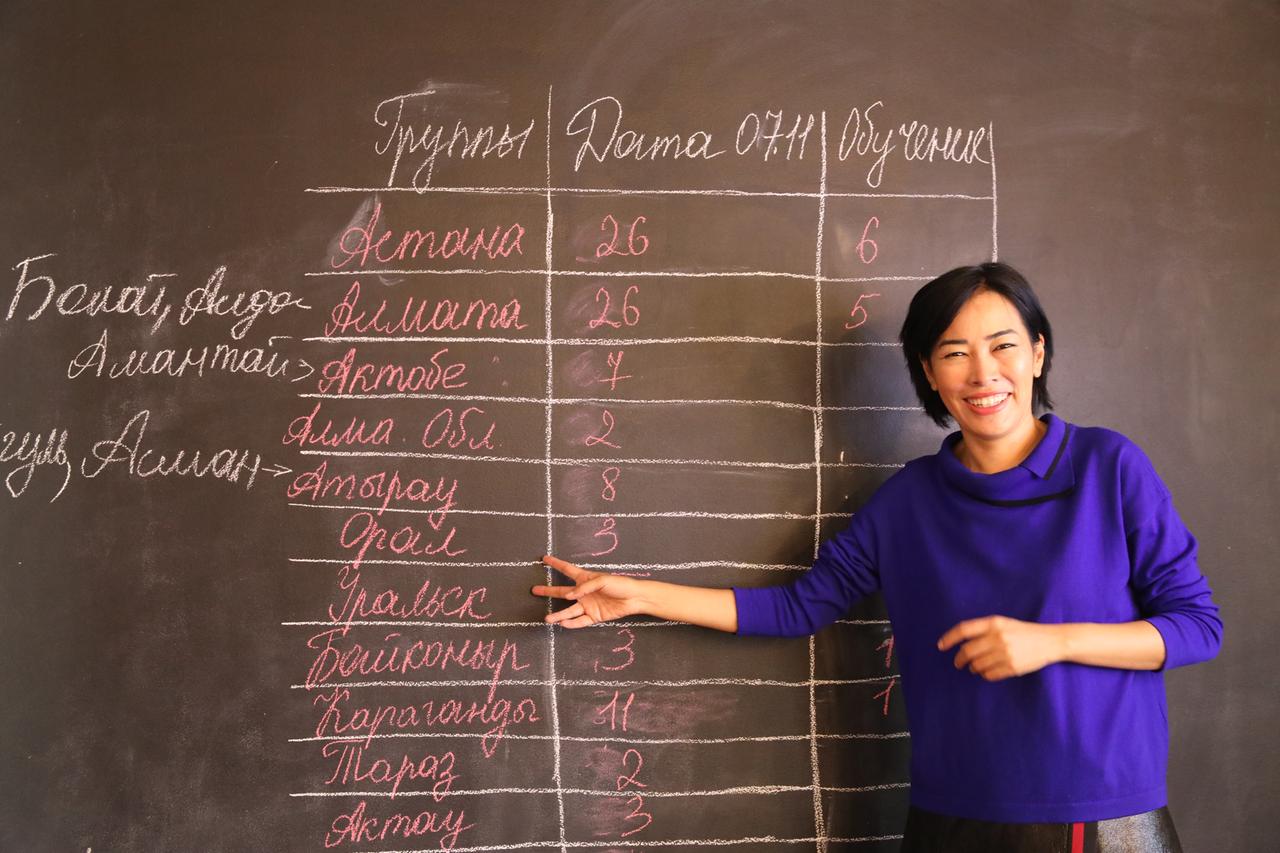 Группы Дата 07.11 Обучение
Астана 26 6
Алмата 26 5
Амантай> Актобе 7
Алма. Обл. 2
Асман→ Атырау 8
Орал 3
Уральск
Байконыр 3 1
Караганды 11 1
Тараз 2
Актау 3